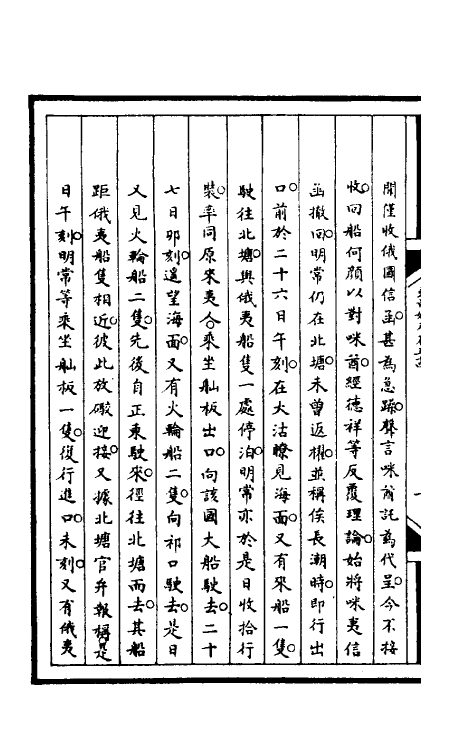 開僅收俄國信函甚為急躁聲言咪酋託為代呈今不接
收回船何顏以對咪酋經德祥等反覆理論始將咪夷信
函撤回明常仍在北塘未曾返櫂並稱俟長潮時即行出
口前於二十六日午刻在大沽瞭見海面又有來船一隻
駛往北塘與俄夷船隻一處停泊明常亦於是日收拾行
裝率同原來夷人乘坐舢板出口向該國大船駛去二十
七日卯刻遙望海面又有火輪船二隻向祁口駛去是日
又見火輪船二隻先後自正東駛來徑往北塘而去其船
距俄夷船隻相近彼此放礮迎接又據北塘官弁報稱是
日午刻明常等乘坐舢板一隻復行進口未刻又有俄夷